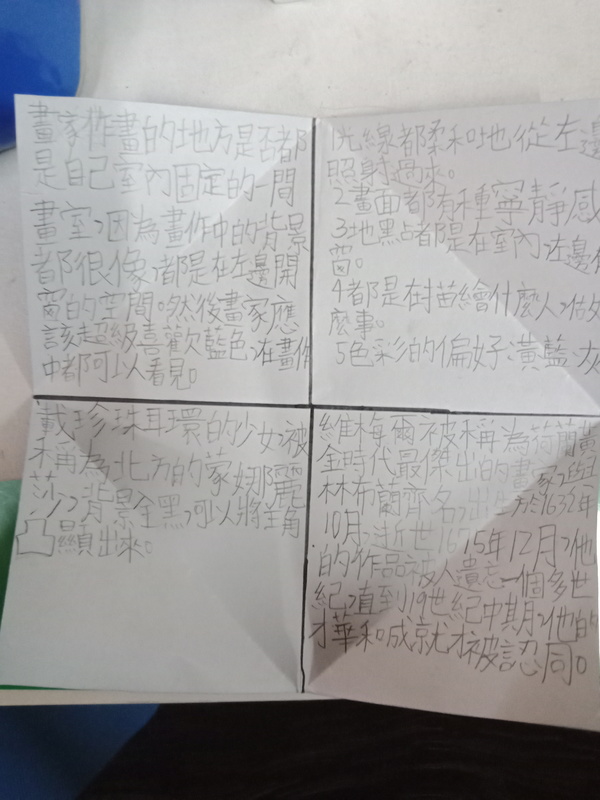 畫家作畫的地方是否都
是自己室內固定的一間
畫室，因為畫作中的背景
都很像，都是在左邊開
窗的空間。然後畫家應
該超級喜歡藍色，在畫作
中都可以看見。
1光線都柔和地從左邊
照射過來。
2畫面都有種寧靜感
3地點都是在室內，左邊
窗。
4都是在描繪什麼人，做
麼事。
5色彩的偏好，黃，藍，灰
戴珍珠耳環的少女，被
稱為北方的蒙娜麗
莎，背景全黑，可以將主角
凸顯出來。
維梅爾被稱為荷蘭黃
金時代最傑出的畫家，與
林布蘭齊名，出生於1632年
10月，逝世1675年12月，他
的作品被人遺忘一個多世
紀，直到19世紀中期，他的
才華和成就才被認同。